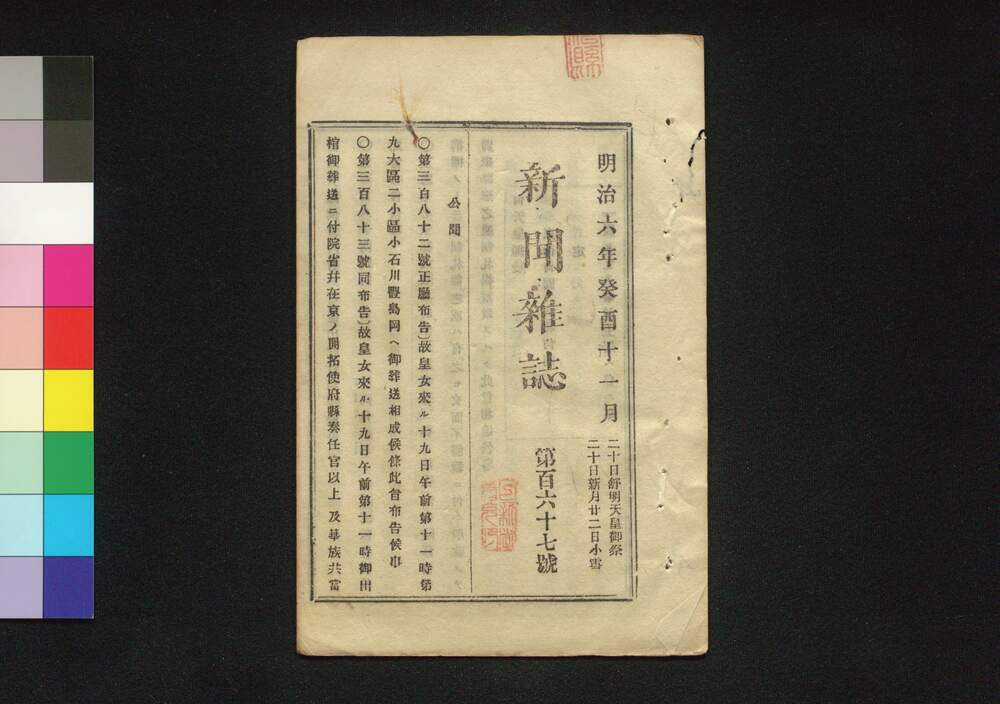 明治六年癸酉十一月
二十日舒明天皇御祭
二十日新月廿二日小雪
新聞雜誌
第百六十七號
公聞
〇第三百八十二號正廳布告〕故皇女來ル十九日午前第十一時第
九大區二小區小石川豐島岡ヘ御葬送相成候條此旨布告候事
〇第三百八十三號同布告〕故皇女來ル十九日午前第十一時御出
棺御葬送ニ付院省幷在京ノ開拓使府縣奏任官以上及華族共當